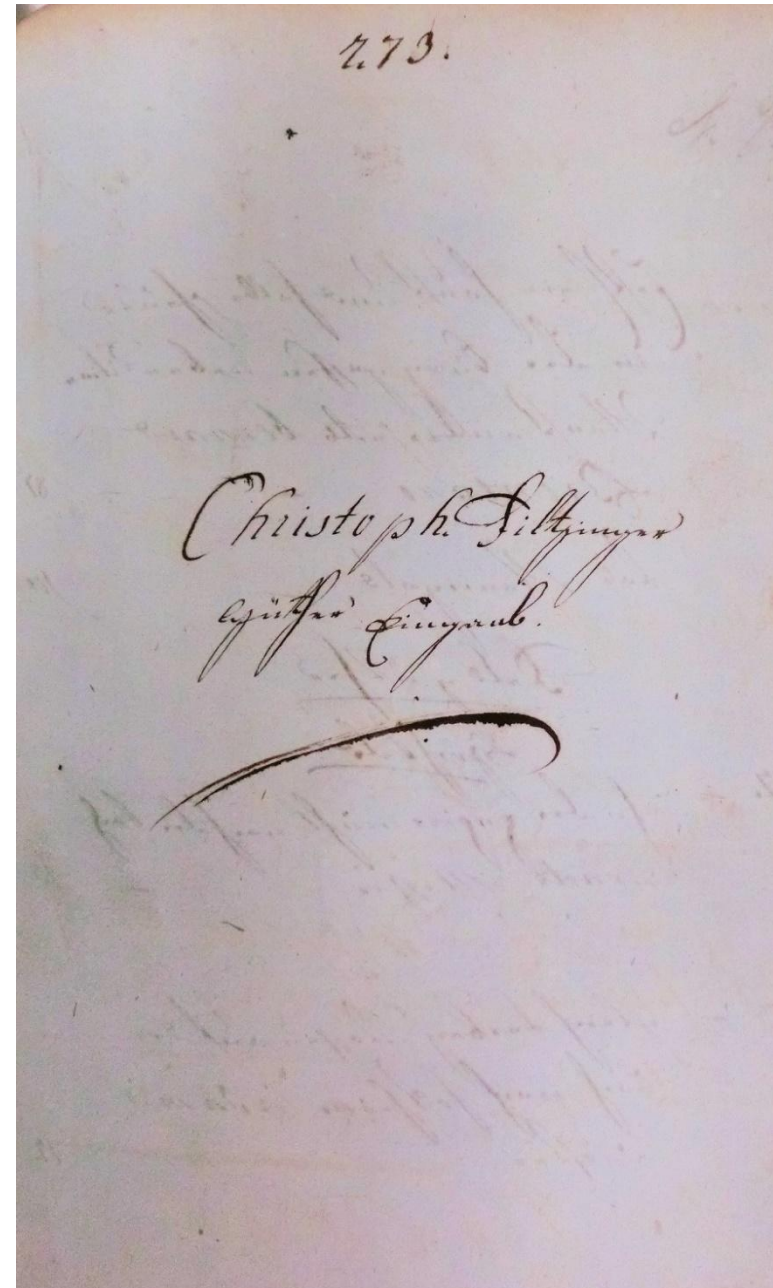 273.
Christoph Filtzinger
Güther Eingaab.